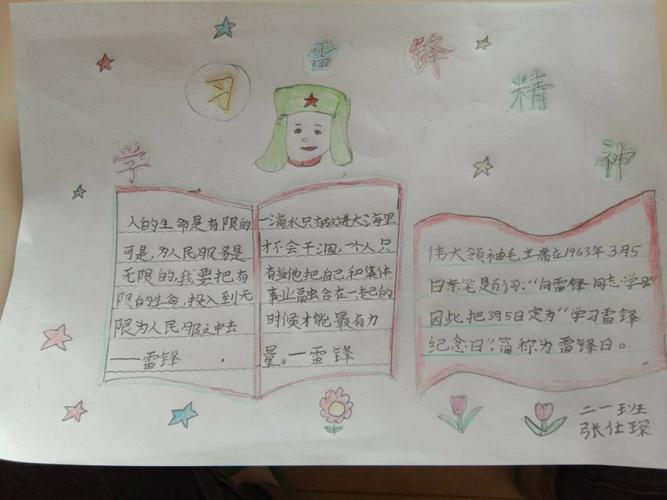 学习雷锋精神
人的生命是有限的
可是,为人民服务是
无限的,我要把有
限的生命,投入到无
限为人民服之中去
——雷锋
一滴水只有放进大海里
才不会干涸,一个人只
有当他把自己和集体
事业融合在一起的
时候才能最有力
量。—雷锋
伟大领袖毛主席在1963年3月5
日亲笔题词:“向雷锋同志学习”
因此把3月5日定为“学习雷锋
纪念日”,简称为雷锋日。
二一班
张仕琛